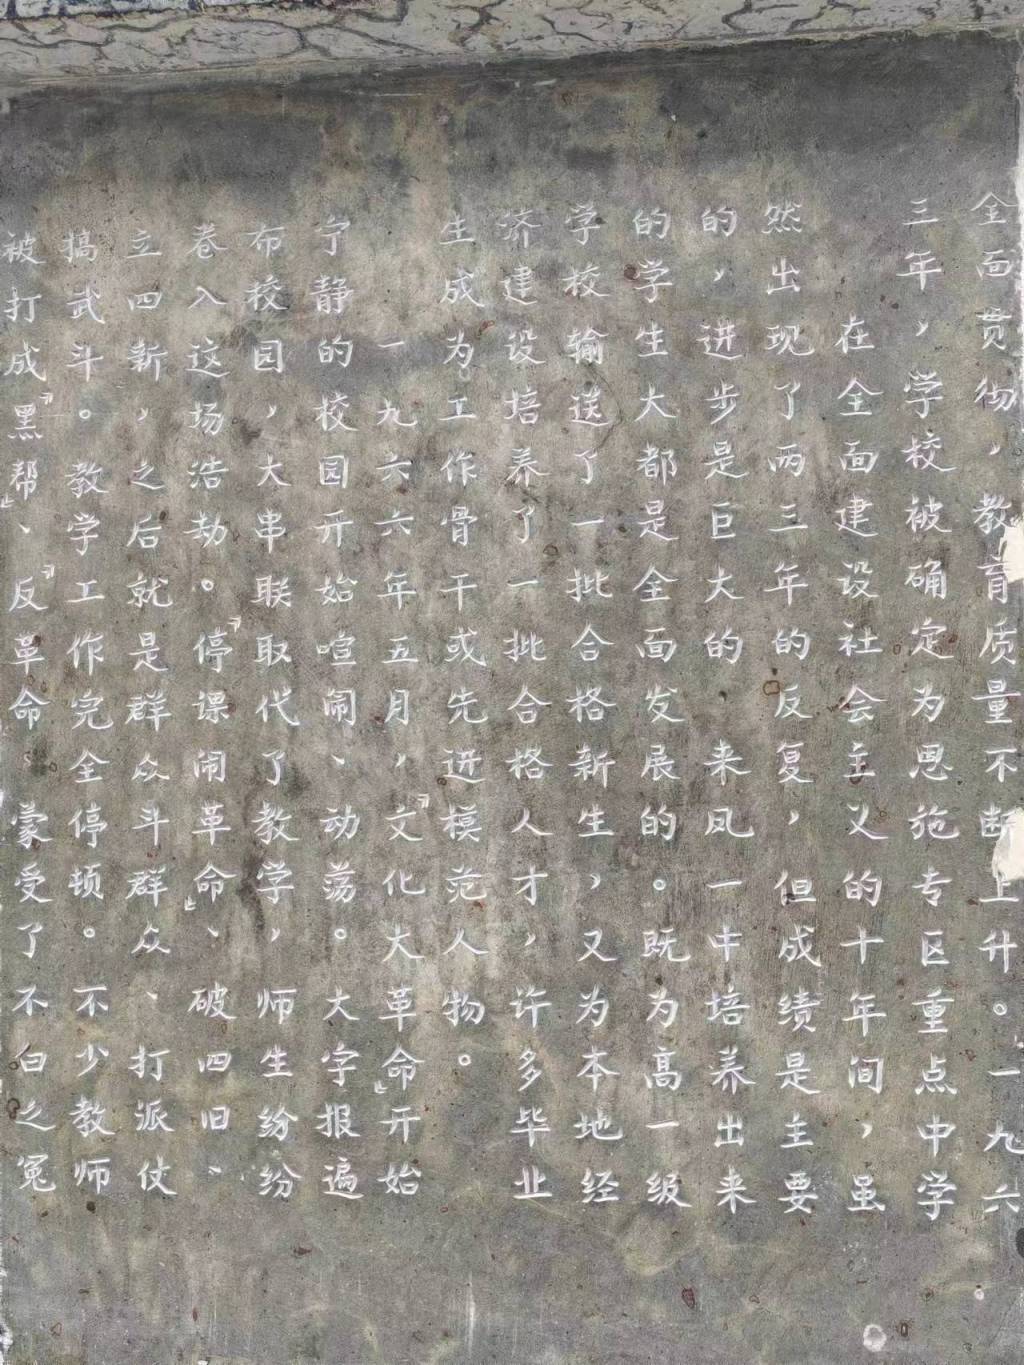 全面贯彻，教育质量不断上升。一九六
三年，学校被确定为恩施专区重点中学
在全面建设社会主义的十年间，虽
然出现了两三年的反复，但成绩是主要
的，进步是巨大的 来凤一中培养出来
的学生大都是全面发展的。既为高一级
学校输送了一批合格新生，又为本地经
济建设培养了一批合格人才，许多毕业
生成为工作骨干或先进模范人物。
一九六六年五月，『文化大革命』开始
宁静的校园开始喧闹、动荡。大字报遍
布校园，大串联取代了教学，师生纷纷
卷入这场浩劫。『停课闹革命』、破四旧、
立四新，之后就是群众斗群众、打派仗
搞武斗。教学工作完全停顿。不少教师
被打成『黑帮』、『反革命 蒙受了不白之冤